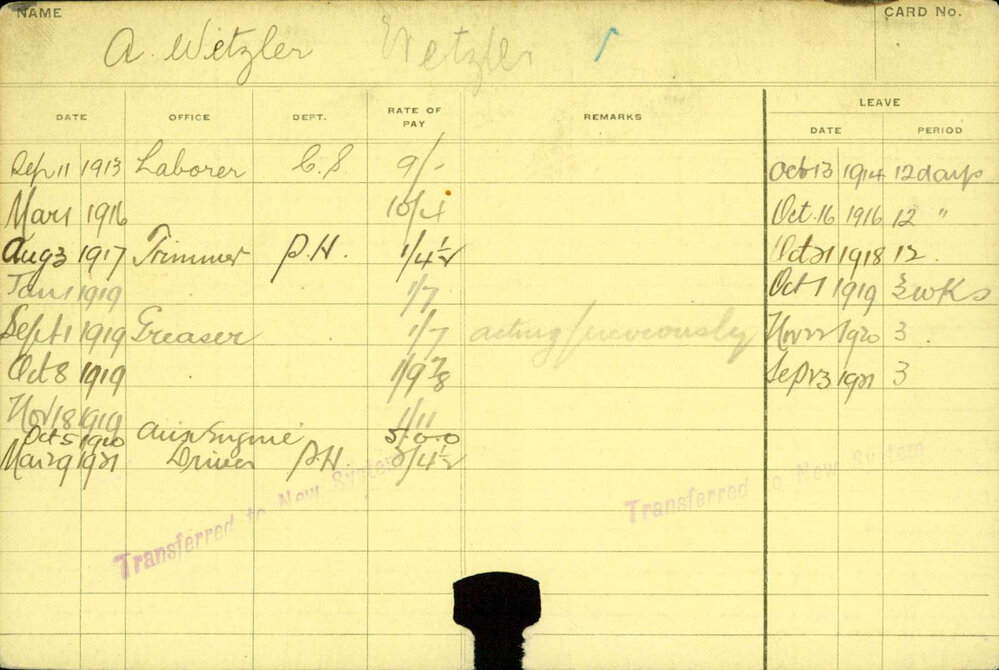 NAME CARD No.
A. Wetzler Wetzler
LEAVE
DATE OFFICE DEPT. RATE OF PAY REMARKS DATE PERIOD
Sep 11 1913 Laborer C.S 9/- Oct 13 1914 12 days
Mar 1 1916 10/4 Oct. 16 1916 12 "
Aug 3 1917 Trimmer P.H. 1/4½ Oct 21 1918 12.
Jan 1 1919 1/7 Oct 1 1919 wks
Sept 1 1919 Greaser 1/7 acting previously Nov 22 1920 3
Oct 8 1919 1/9⅞ Sep 23 1921 3
Nov 18 1919 1/11
Oct 5 1920 Engine
Mar 29 1921 Driver P.H. /4½
Transferred to New System
Transferred to New System